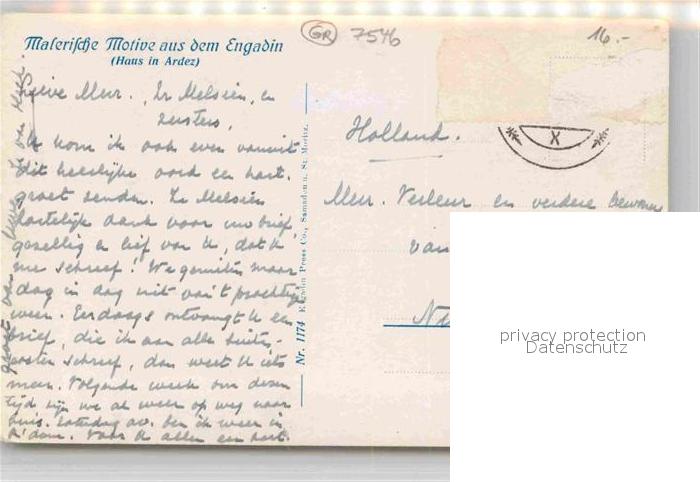 Malerische Motive aus dem Engadin
(Haus in Ardez)
GR 7546
16.-
Lieve Meur. Zr Melsien, en
zusters,
U kom ik ook even vanuit
dit heerlijke oord een hart.
groet zenden. Zr Melsien
hartelijk dank voor uw brief
gezellig en lief van U, dat U
me schreef! We genieten maar
dag in dag uit van 't prachtige
weer. Eerdaags ontvangt U een
brief, die ik aan alle
schreef, dan weet U iets
meer. Volgende week om dezen
tijd zijn we al weer op weg naar
huis. Zaterdag av. ben ik weer in
R'dam. Voor U allen een hart.
groet van
Nr. 1174 Engadin Press Co., Samaden u. St. Moritz.
Holland.
X
Meur. Verleur en verdere bewoners
van
Ni
privacy protection
Datenschutz